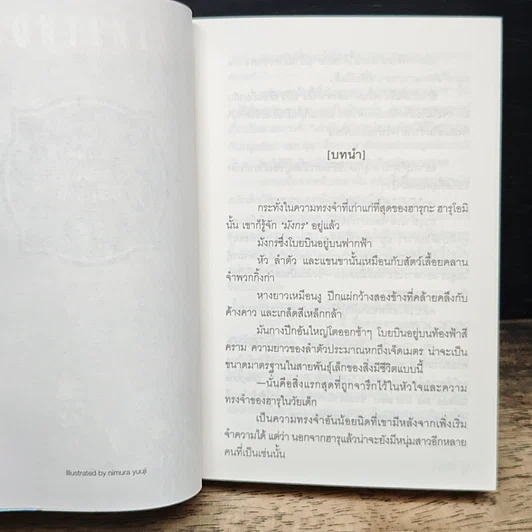 Illustrated by nimura yuuji
[บทนำ]
กระทั่งในความทรงจำที่เก่าแก่ที่สุดของฮารุกะ ฮารุโอมิ
นั้น เขาก็รู้จัก ‘มังกร’ อยู่แล้ว
มังกรซึ่งโบยบินอยู่บนฟากฟ้า
หัว ลำตัว และแขนขานั้นเหมือนกับสัตว์เลื้อยคลาน
จำพวกกิ้งก่า
หางยาวเหมือนงู ปีกแผ่กว้างสองข้างที่คล้ายคลึงกับ
ค้างคาว และเกล็ดสีเหล็กกล้า
มันกางปีกอันใหญ่โตออกช้าๆ โบยบินอยู่บนท้องฟ้าสี
คราม ความยาวของลำตัวประมาณหกถึงเจ็ดเมตร น่าจะเป็น
ขนาดมาตรฐานในสายพันธุ์เล็กของสิ่งมีชีวิตแบบนี้
—นั่นคือสิ่งแรกสุดที่ถูกจารึกไว้ในหัวใจและความ
ทรงจำของฮารุในวัยเด็ก
เป็นความทรงจำอันน้อยนิดที่เขามีหลังจากเพิ่งเริ่ม
จำความได้ แต่ว่า นอกจากฮารุแล้วน่าจะยังมีหนุ่มสาวอีกหลาย
คนที่เป็นเช่นนั้น